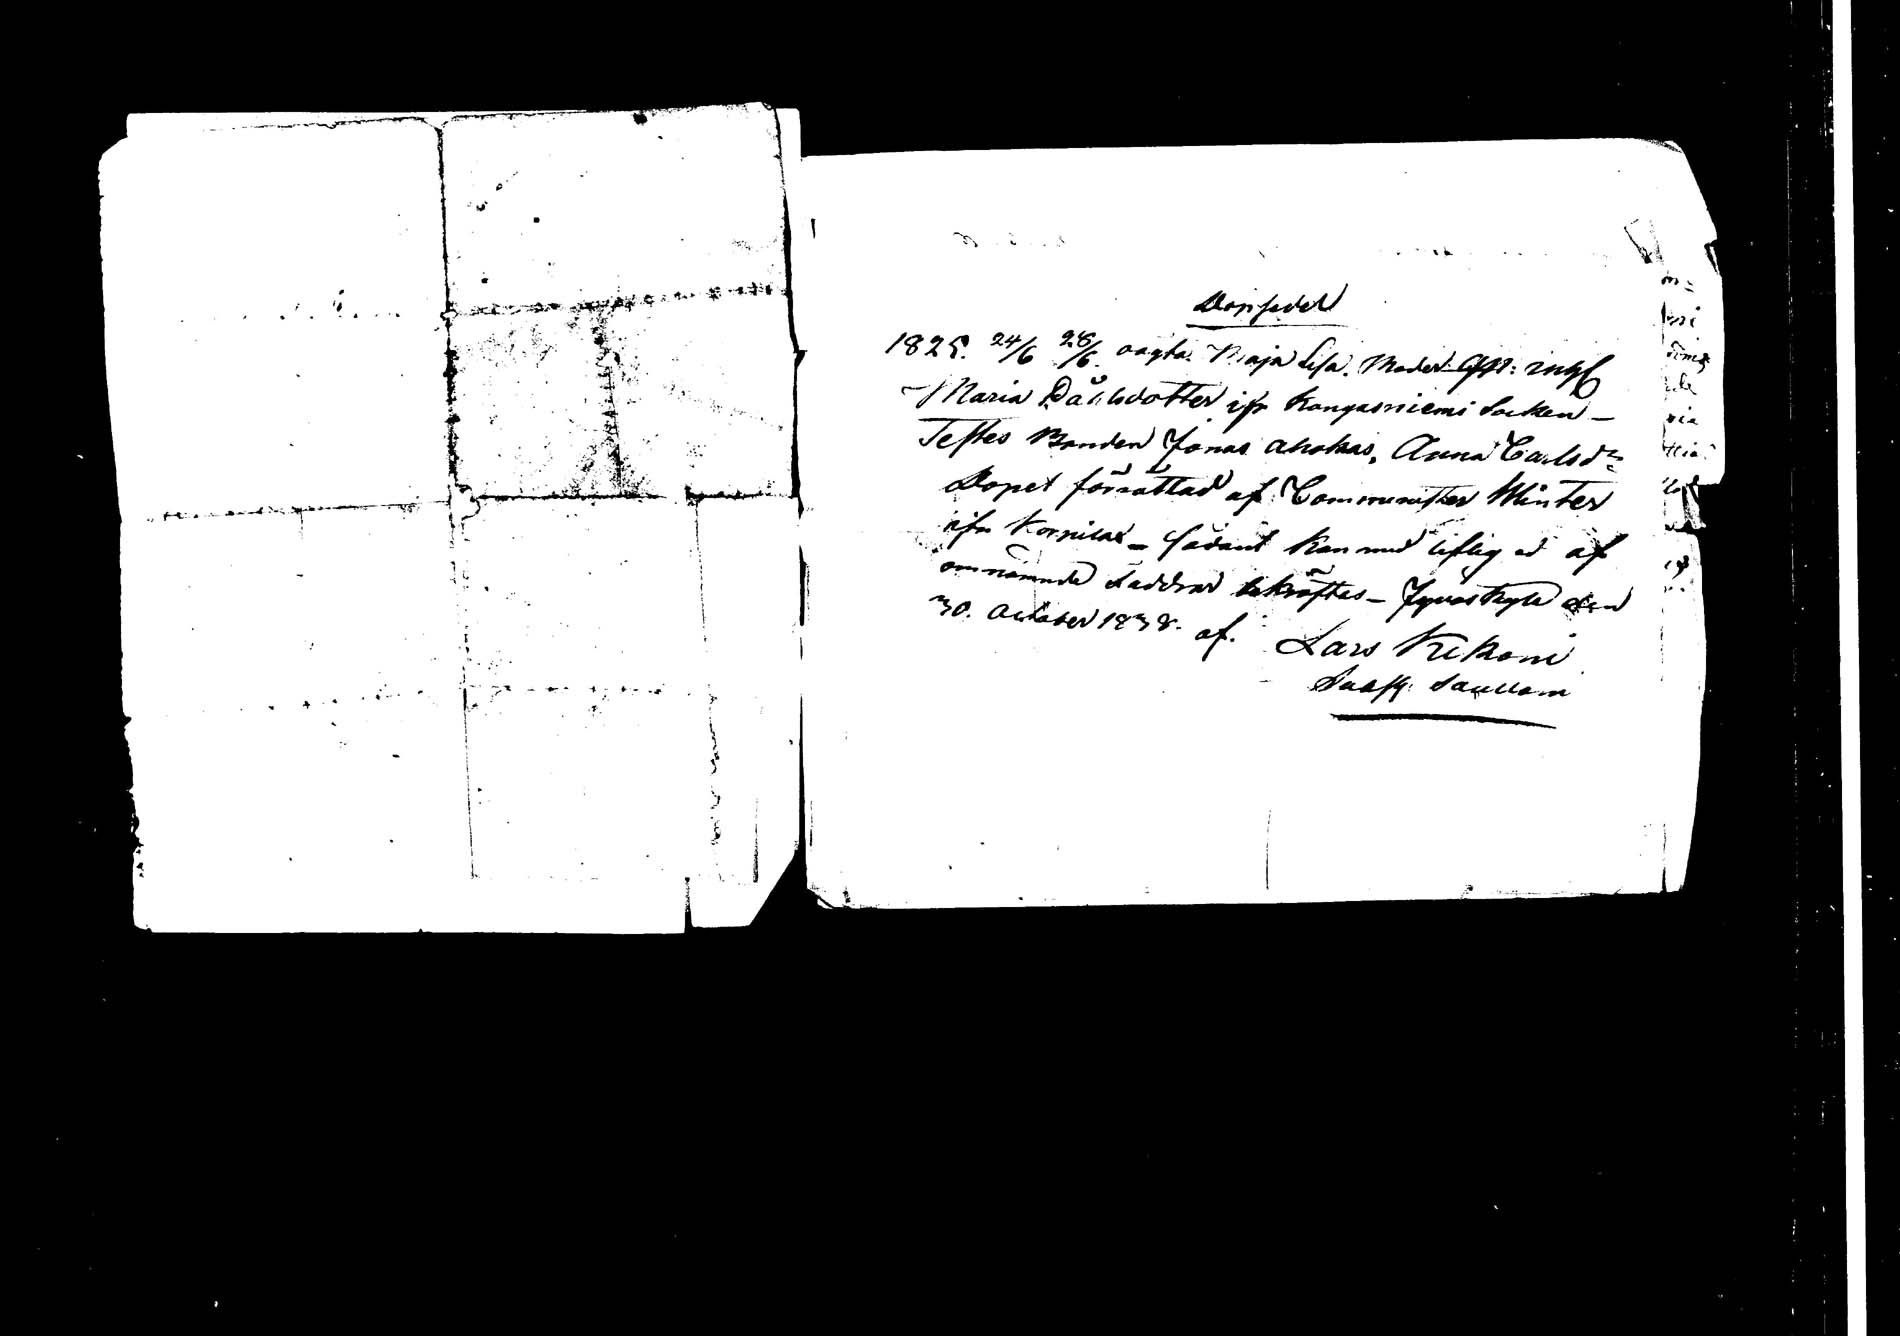 Dopsedel
1825. 24/6 28/6. oägta. Maja Lisa. Moder
Maria Påhlsdotter ifr Kangasniemi Socken –
Testes Bonden Jonas Ahokas, Anna Carlsdr
Dopet förrättad af Comminister Winter
ifr Korpilax – sådant kan med liflig ed af
omnämnde Faddrar bekräftas – Jyväskylä den
30. October 1838. af. Lars Kekoni